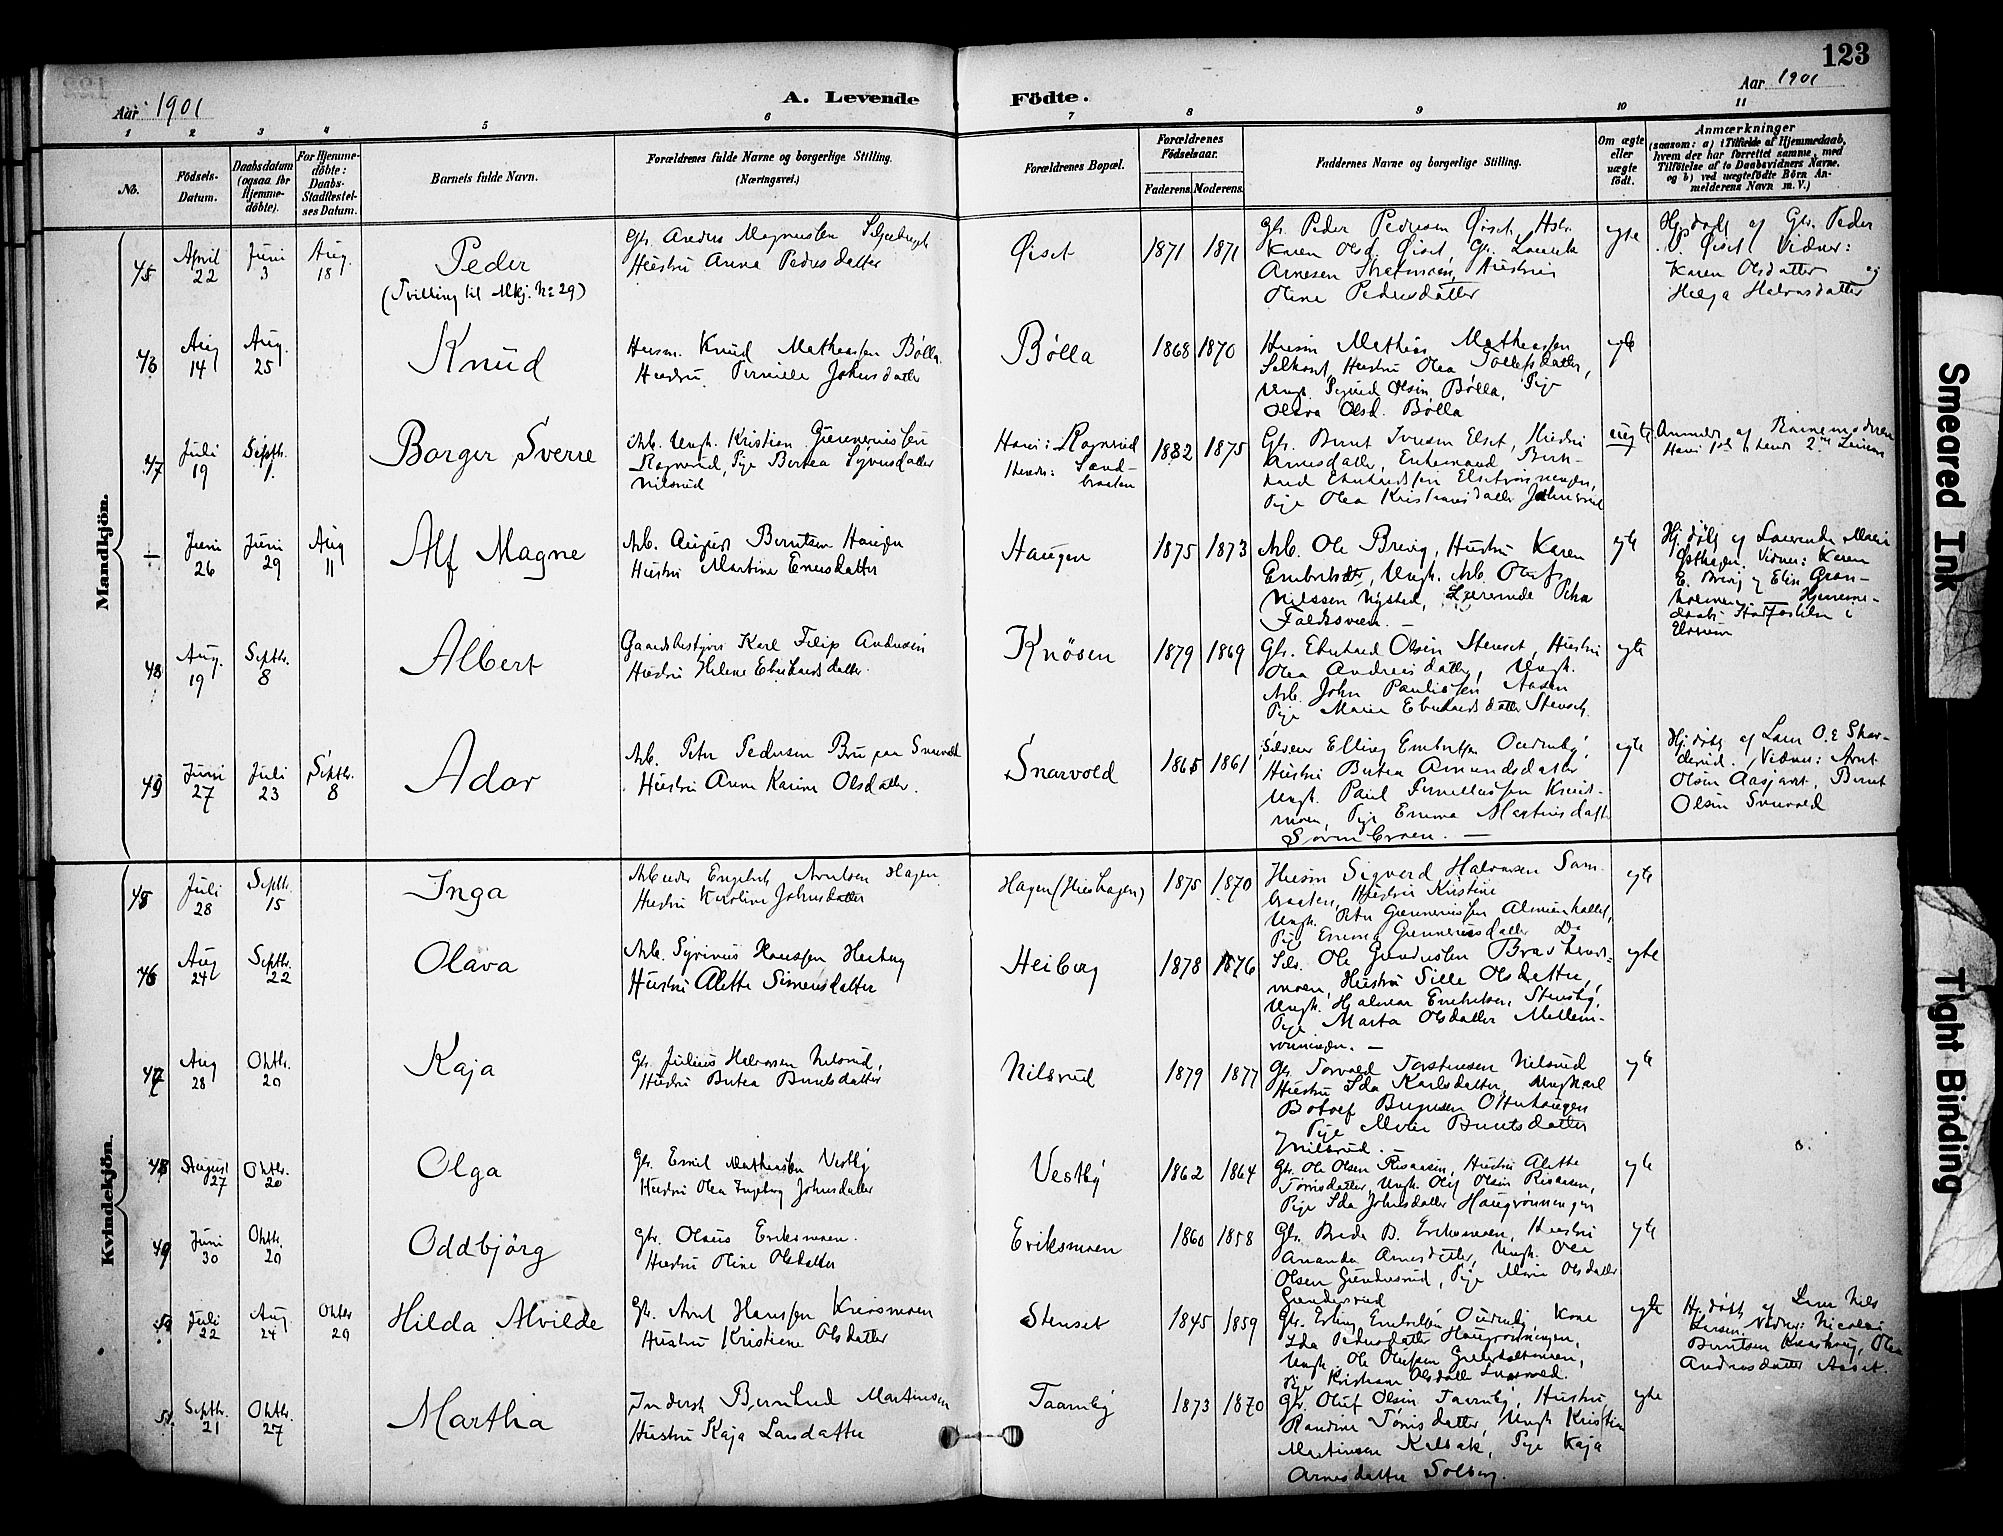 123
Aar 1901
A. Levende Födte.
Aar 1901
1 2 3 4 5 6 7 8 9 10 11
No.
Födsels-
Datum.
Daabsdatum
(ogsaa for
Hjemme-
döbte).
For Hjemme-
döbte:
Daabs-
Stadfæstel-
ses Datum.
Barnets fulde Navn.
Forældrenes fulde Navne og borgerlige Stilling.
(Næringsvei.)
Forældrenes Bopæl.
Forældrenes
Födselsaar.
Faderens. Moderens.
Faddernes Navne og borgerlige Stilling.
Om ægte
eller
uægte
födt.
Anmærkninger
(saasom: a) i Tilfælde af Hjemmedaab,
hvem der har forrettet samme, med
Tilföielse af to Daabsvidners Navne,
og b) ved uægtefödte Börn An-
melderens Navn m. V.)
Mandkjön.
45 April 22 Juni 3 Aug. 18
Peder
(Tvilling til Mkj. No 29)
Gbr. Anders Magnussen
Hustru Anna Pedersdatter
Øiset 1871 1871
Gbr. Peder Pedersen Øiset, Hstr.
Karen Olsd. Øiset, Gbr.
Arnesen Hustru
Oline Pedersdatter
egte
Hj.døbt af Gbr. Peder
P. Øiset Vidner:
Karen Olsdatter og
Helga Halvorsdatter
46 Aug 14 Aug. 25
Knud
Husm. Knud Mathiassen Bølla
Hustru Johnsdatter
Bølla 1868 1870
Husm Mathias Mathiassen
Hustru Olea
Ungk. Sigurd Olsen Bølla, Pige
Olava Olsd. Bølla
egte
47 Juli 19 Septbr. 1
Borger Sverre
Arb. Ungk. Kristian Gunneriussen
Rognerud, Pige Bertea Syversdatter
Nilsrud
Hans: Rognerud
Hendes: Sand-
braaten
1882 1875
Gbr. Bernt Iversen Elset, Hustru
Arnesdatter, Enkemand Bern-
hard Eberhardsen Elsetrønningen,
Pige Olea Kristiansdatter Johnsrud
uegte
Anmeldt af Barnemoderen
Hans 1ste hendes 2det Leierm.
÷ Juni 26 Juni 29 Aug 11
Alf Magne
Arb. August Berntsen Haugen
Hustru Martine Enersdatter
Haugen 1875 1873
Arb. Ole Brevig, Hustru Karen
Embretsdtr, Ungk. Arb. Oluf
Nilssen Nysted, Lærerinde Petra
Faldesveen. —
egte
Hj.døbt af Lærerinde Marie
Østhagen. Vidner: Karen
E. Brevig og Elise Gran-
holmen — Hjemme-
daab Stadfæstelse i
Elverum
48 Aug. 19 Septbr. 8
Albert
Gaardbestyrer Karl Filip Andersen
Hustru Helene Eberhardsdatter
Knösen 1879 1869
Gbr. Eberhard Olsen Stenset, Hustru
Olea Andreasdatter, Ungk.
Arb. John Pauliussen Aasen
Pige Marie Eberhardsdatter Stenset.
egte
49 Juni 27 Juli 23 Septbr. 8
Ador
Arb. Peter Pedersen Bru paa Snarvold
Hustru Anna Karine Olsdatter.
Snarvold 1865 1861
Elling Embretsen Oudenby,
Hustru Bertea Amundsdatter
Ungk. Paul
Pige Emma Martinsdatter
egte
Hj.døbt af Lærer O. E Skar-
derud. Vidner: Arnt
Olsen Aasgaard, Bernt
Olsen Snarvold
Kvindekjön.
45 Juli 28 Septbr. 15
Inga
Arbeider Engebret Arnesen Hagen
Hustru Karoline Johnsdatter
Hagen 1875 1870
Husm Sigvard Halvorsen Sam-
braaten, Hustru Kristine
Ungk. Peter Gunneriussen
Pige Emma Gunneriusdatter Do
egte
46 Aug 24 Septbr. 22
Olava
Arb. Syrinus Hanssen Heiberg
Hustru Alette Simensdatter
Heiberg 1878 1876
Ole Gundersen
moen, Hustru Sille Olsdatter,
Ungk. Hjalmar Embretsen, Stensby,
Pige Marta Olsdatter Mellem-
rønningen. —
egte
47 Aug 28 Oktbr. 20
Kaja
Gbr. Julius Halvorsen Nilsrud,
Hustru Bertea Berntsdatter
Nilsrud 1879 1877
Gbr. Torvald Torstensen Nilsrud
Hustru Ida Karlsdatter, Ungkarl
Botolf
Pige Marie Berntsdatter
Nilsrud. —
egte
48 August 27 Oktbr. 20
Olga
Gbr. Emil Mathiassen Vestby
Hustru Olea Ingeborg Johnsdatter
Vestby 1862 1864
Gbr. Ole Olsen Risaasen, Hustru Alette
Tørrisdatter, Ungk. Olof Olsen Risaasen,
Pige Ida Johnsdatter Haugrønningen
egte
49 Juni 30 Oktbr. 20
Oddbjörg
Gbr. Olaus Eriksmoen.
Hustru Oline Olsdatter
Eriksmoen 1860 1858
Gbr. Peder B. Eriksmoen, Hustru
Amanda Arnesdatter, Ungk. Ole
Olsen Gundersrud, Pige Marie Olsdatter
Gundersrud
egte
50 Juli 22 Aug. 24 Oktbr 29
Hilda Alvilde
Gbr. Arnt Hanssen
Hustru Kristiane Olsdatter
Stenset 1845 1859
Gbr. Erling Embretsen Oudenby, Kone
Ida Pedersdatter Haugrønningen,
Ungk. Ole Olufsen
Pige Kristiane Olsdatter Snarvold.
egte
Hj.døbt af Lærer Nils
Larsen. Vidner: Nicolai
Berntsen Olea
Andreasdatter Aaset.
51. Septbr. 21 Oktbr. 27
Martha
Inderst Bernhard Martinsen
Hustru Kaja Larsdatter
Taarnby 1873 1870
Gbr. Oluf Olsen Taarnby, Hustru
Randine Tørrisdatter, Ungk Kristian
Martinsen Kalbak, Pige Kaja
Arnesdatter Solberg.
egte
Smeared Ink
Tight Binding